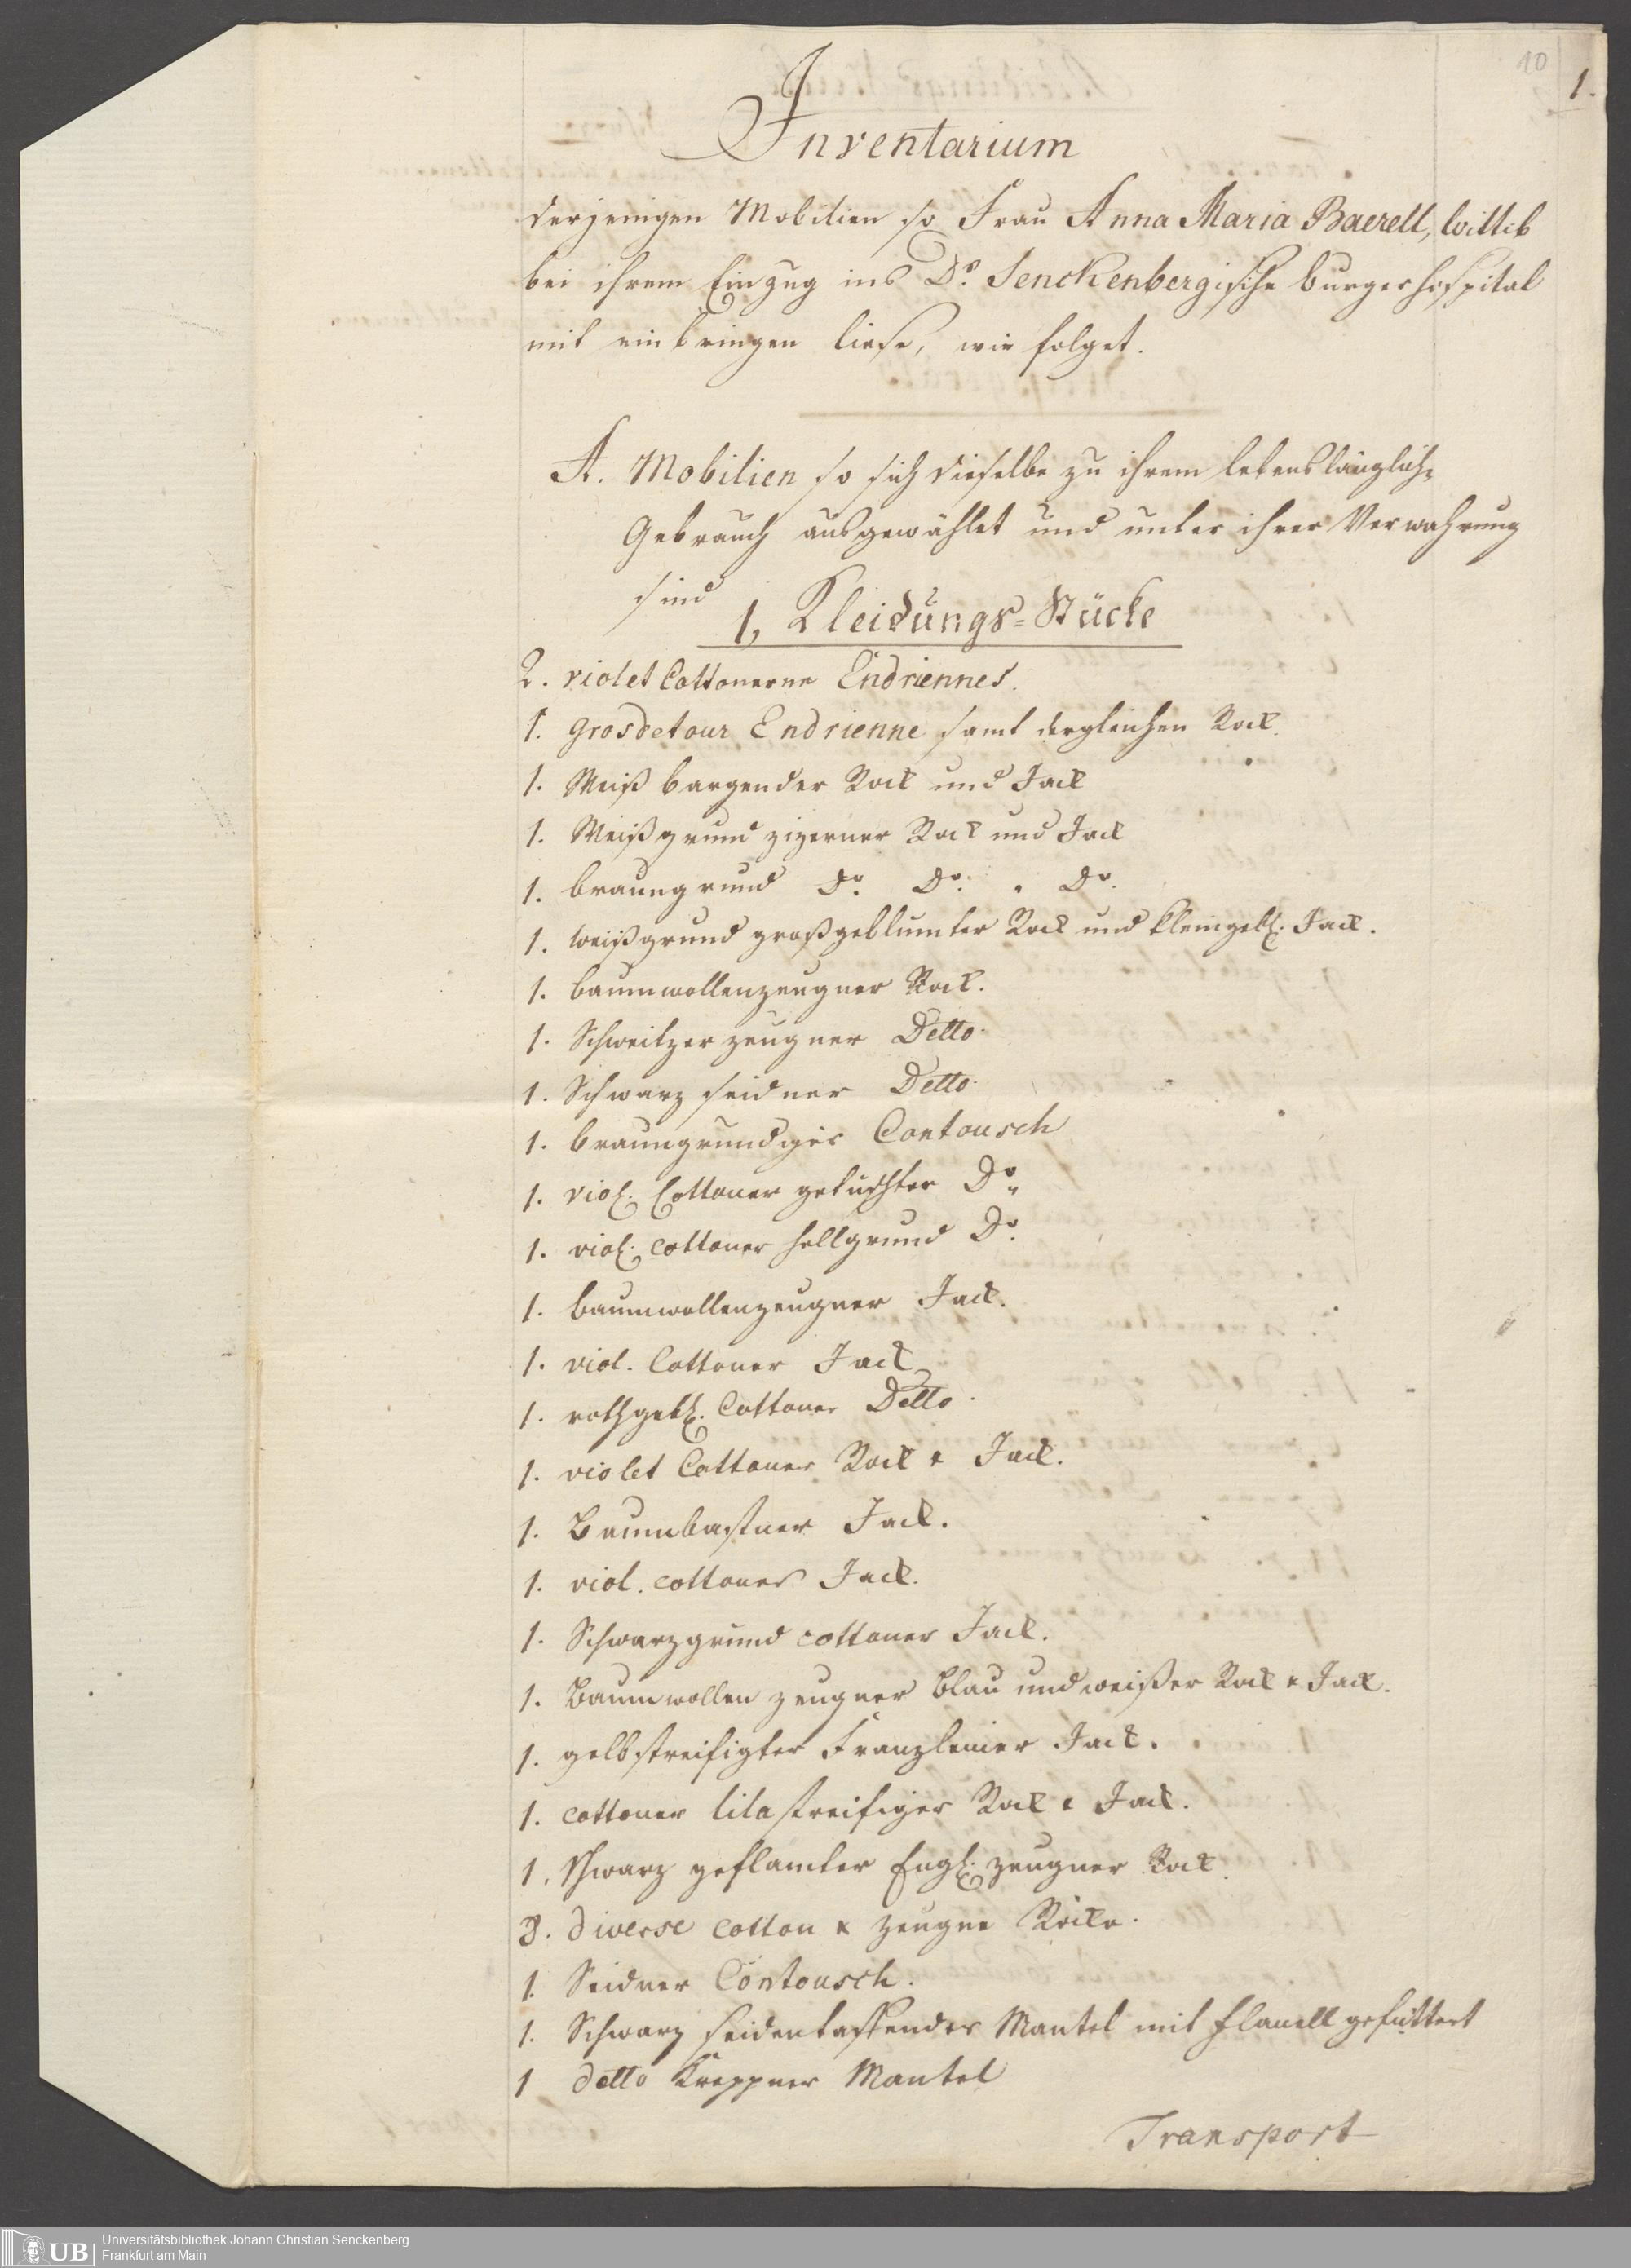 10
1.
Inventarium
derjenigen Mobilien so Frau Anna Maria Baerell, Wittib
bei ihrem Einzug ins Dr. Senckenbergische Burgerhospital
mit einbringen liese, wie folget.
A. Mobilien so sich dieselbe zu ihrem lebenslänglich
Gebrauch ausgewählet und unter ihrer Verwahrung
sind
1, Kleidungs=Stücke
2. violet Cottonerne Endriennes.
1. grosdetour Endrienne samt dergleichen Rock.
1. Weiß bargender Rock und Jack
1. Weißgrund zizerner Rock und Jack
1. braungrund Do. Do. " Do.
1. weißgrund großgeblumter Rock und kleingebl. Jack.
1. baumwollenzeugner Rock.
1. Schweitzerzeugner Detto.
1. Schwarz seidner Detto.
1. braungrundiger Contousch
1. viol. Cottoner getuschter Do.
1. viol. cottoner hellgrund Do.
1. baumwollenzeugner Jack.
1. viol. Cottoner Jack
1. rothgebl. Cottoner Detto.
1. violet Cottoner Rock & Jack.
1. Baumbastner Jack.
1. viol. cottoner Jack.
1. Schwarzgrund cottoner Jack.
1. Baumwollen zeugner blau und weißer Rock & Jack.
1. gelbstreifigter Franzleiner Jack.
1. cottoner lilastreifiger Rock & Jack.
1. schwarz geflamter Engl. zeugner Rock.
3. diverse cotton & zeugne Röcke.
1. Seidner Contousch.
1. Schwarz seidentaffender Mantel mit Flanell gefüttert
1 detto Kreppner Mantel
Transport
UB
Universitätsbibliothek Johann Christian Senckenberg
Frankfurt am Main